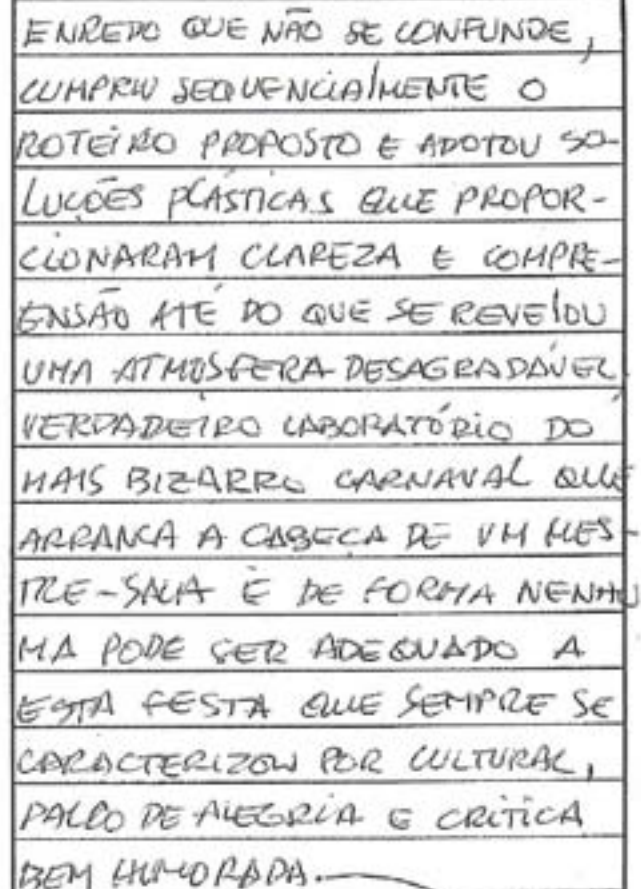 ENREDO QUE NÃO SE CONFUNDE,
CUMPRIU SEQUENCIALMENTE O
ROTEIRO PROPOSTO E ADOTOU SO-
LUÇÕES PLÁSTICAS QUE PROPOR-
CIONARAM CLAREZA E COMPRE-
ENSÃO ATÉ DO QUE SE REVELOU
UMA ATMOSFERA DESAGRADÁVEL
VERDADEIRO LABORATÓRIO DO
MAIS BIZARRO CARNAVAL QUE
ARRANCA A CABEÇA DE UM MES-
TRE-SALA E DE FORMA NENHU
MA PODE SER ADEQUADO A
ESTA FESTA QUE SEMPRE SE
CARACTERIZOU POR CULTURAL,
PALCO DE ALEGRIA E CRÍTICA
BEM HUMORADA.